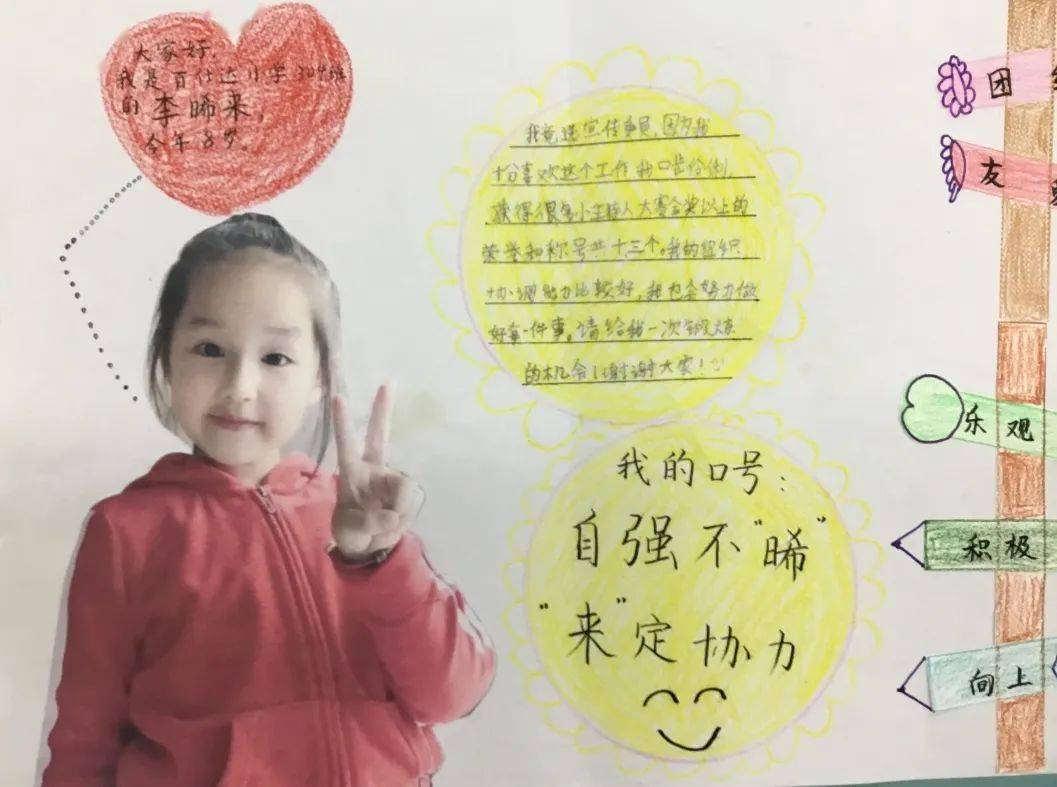 大家好，
我是百仕达小学304班
的李晞来，
今年8岁。
我竞选宣传委员，因为我
十分喜欢这个工作，我口齿伶俐，
获得很多小主持人大赛金奖以上的
荣誉和称号共十三个。我的组织
协调能力比较好，我也会努力做
好每一件事。请给我一次锻炼
的机会！谢谢大家！
我的口号：
自强不"晞"
"来"定协力
团
友
乐观
积极
向上